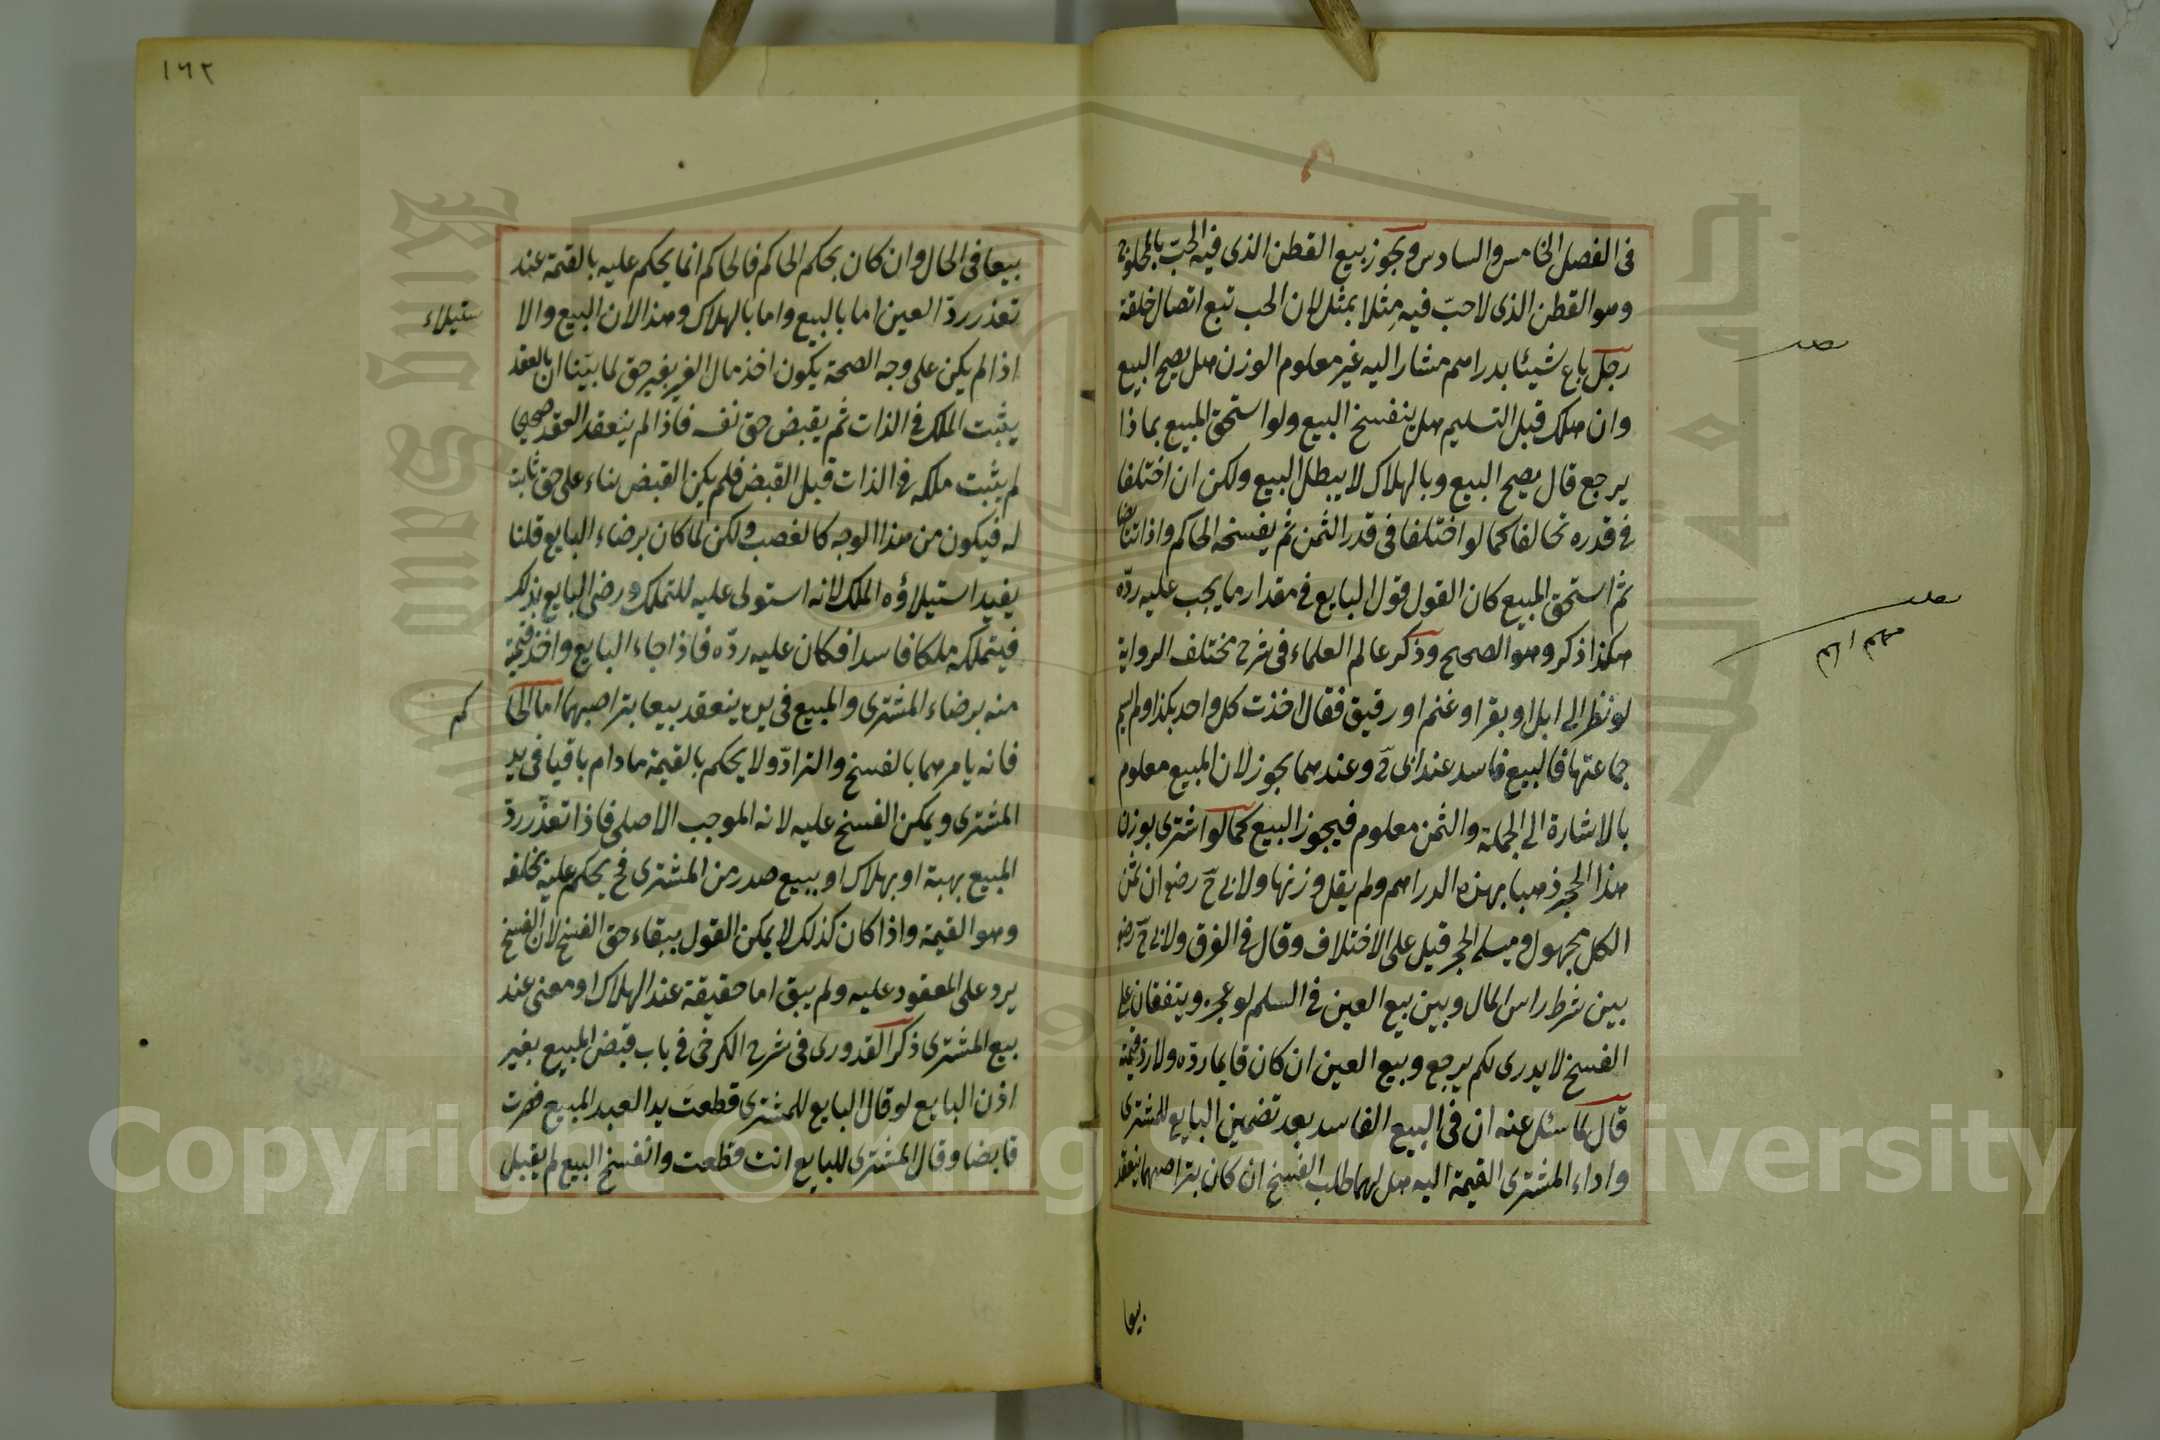 فى الفصل الخامس والسادس ويجوز بيع القطن الذى فيه الحبّ بالمحلوج
وهو القطن الذى لا حبّ فيه مثلا بمثل لان الحب تبع اتصال خلقة
رجل باع شيئا بدراهم مشار اليه غير معلوم الوزن هل يصح البيع
وان هلك قبل التسليم هل ينفسخ البيع ولو استحق المبيع بماذا
يرجع قال يصح البيع وبالهلاك لا يبطل البيع ولكن ان اختلفا
فى قدره تحالفا كما لو اختلفا فى قدر الثمن ثم يفسخه الحاكم واذا تقابضا
ثم استحق المبيع كان القول قول البايع فى مقدار ما يجب عليه ردّه
هكذا ذكر وهو الصحيح وذكر عالم العلماء فى شرح مختلف الرواية
لو نظر الى ابل او بقر او غنم او رقيق فقال اخذت كل واحد بكذا ولم يسم
جماعتها فالبيع فاسد عند ابى ح وعندهما يجوز لان المبيع معلوم
بالاشارة الى الجملة والثمن معلوم فيجوز البيع كما لو اشترى بوزن
هذا الحجر ذهبا بهذه الدراهم ولم يقل وزنها ولابى ح رضو ان ثمن
الكل مجهول ومسئلة الحجر قيل على الاختلاف وقال فى الفرق ولابى ح رضو
بين شرط راس المال وبين بيع العين فى السلم لو عجز ويتفقان على
الفسخ لا يدرى لكم يرجع وبيع العين ان كان قايما ردّه ولا ردّ قيمته
قال لما سئل عنه ان فى البيع الفاسد بعد تضمين البايع للمشترى
واداء المشترى القيمة اليه هل لهما طلب الفسخ ان كان بتراضيهما ينعقد
بيعا
١٦٢
بيعا فى الحال وان كان بحكم الحاكم فالحاكم انما يحكم عليه بالقيمة عند
تعذر ردّ العين اما بالبيع واما بالهلاك وهذا لان البيع والا
ستيلاء
اذا لم يكن على وجه الصحة يكون اخذ مال الغير بغير حق لما بيّنا ان بالعقد
يثبت الملك فى الذات ثم يقبض حق نفسه فاذا لم ينعقد العقد صحيح
لم يثبت ملكه فى الذات قبل القبض فلم يكن القبض بناء على حق ثابت
له فيكون من هذا الوجه كالغصب ولكن لما كان برضاء البايع قلنا
يفيد استيلاؤه الملك لانه استولى عليه للتملك ورضى البايع بذلك
فيتملكه ملكا فاسدا فكان عليه ردّه فاذا جاء البايع واخذ قيمته
منه برضاء المشترى والمبيع فى يده ينعقد بيعا بتراضيهما اما الحا
كم
فانه يامرهما بالفسخ والترادّ ولا يحكم بالقيمة مادام باقيا فى يد
المشترى ويمكن الفسخ عليه لانه الموجب الاصلى فاذا تعذّر ردّ
المبيع بهبة او بهلاك او ببيع صدر من المشترى فح يحكم عليه بخلفه
وهو القيمة واذا كان كذلك لا يمكن القول ببقاء حق الفسخ لان الفسخ
يرد على المعقود عليه ولم يبق اما حقيقة عند الهلاك او معنى عند
بيع المشترى ذكر القدورى فى شرح الكرخى فى باب قبض المبيع بغير
اذن البايع لو قال البايع للمشترى قطعت يد العبد المبيع فصرت
قابضا وقال المشترى للبايع انت قطعت وانفسخ البيع لم يقبل
Copyright © King Saud University